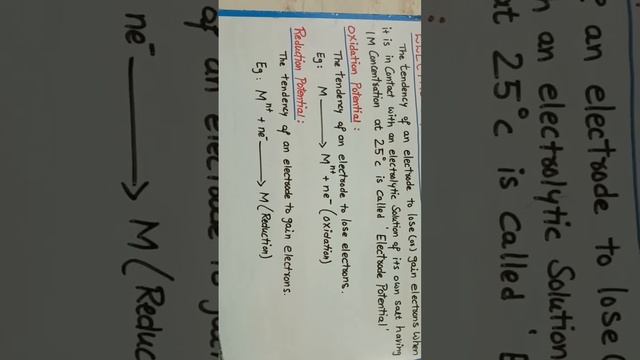 The tendency of an electrode to lose (or) gain electrons when
it is in Contact with an electrolytic Solution of its own salt having
1M Concentration at 25°c is called 'Electrode Potential'
Oxidation Potential:
The tendency of an electrode to lose electrons.
Eg: M ⟶ Mⁿ⁺ + ne⁻ (oxidation)
Reduction Potential:
The tendency of an electrode to gain electrons.
Eg: Mⁿ⁺ + ne⁻ ⟶ M (Reduction)